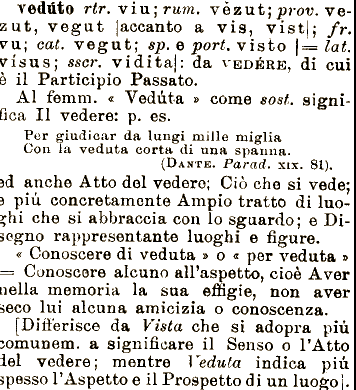 vedúto rtr. viu; rum. vèzut; prov. ve-
zut, vegut [accanto a vis, vist]; fr.
vu; cat. vegut; sp. e port. visto [= lat.
visus; sscr. vidita]: da VEDÉRE, di cui
è il Participio Passato.
Al femm. « Vedúta » come sost. signi-
fica Il vedere: p. es.
Per giudicar da lungi mille miglia
Con la veduta corta di una spanna.
(DANTE. Parad. XIX. 81).
ed anche Atto del vedere; Ciò che si vede;
e piú concretamente Ampio tratto di luo-
ghi che si abbraccia con lo sguardo; e Di-
segno rappresentante luoghi e figure.
« Conoscere di veduta » o « per veduta »
= Conoscere alcuno all'aspetto, cioè Aver
nella memoria la sua effigie, non aver
seco lui alcuna amicizia o conoscenza.
[Differisce da Vista che si adopra piú
comunem. a significare il Senso o l'Atto
del vedere; mentre Veduta indica piú
spesso l'Aspetto e il Prospetto di un luogo].